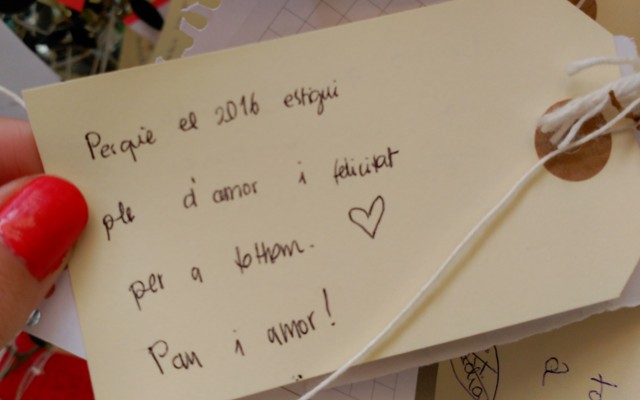 Perquè el 2016 estigui
ple d'amor i felicitat
per a tothom.
Pau i amor!